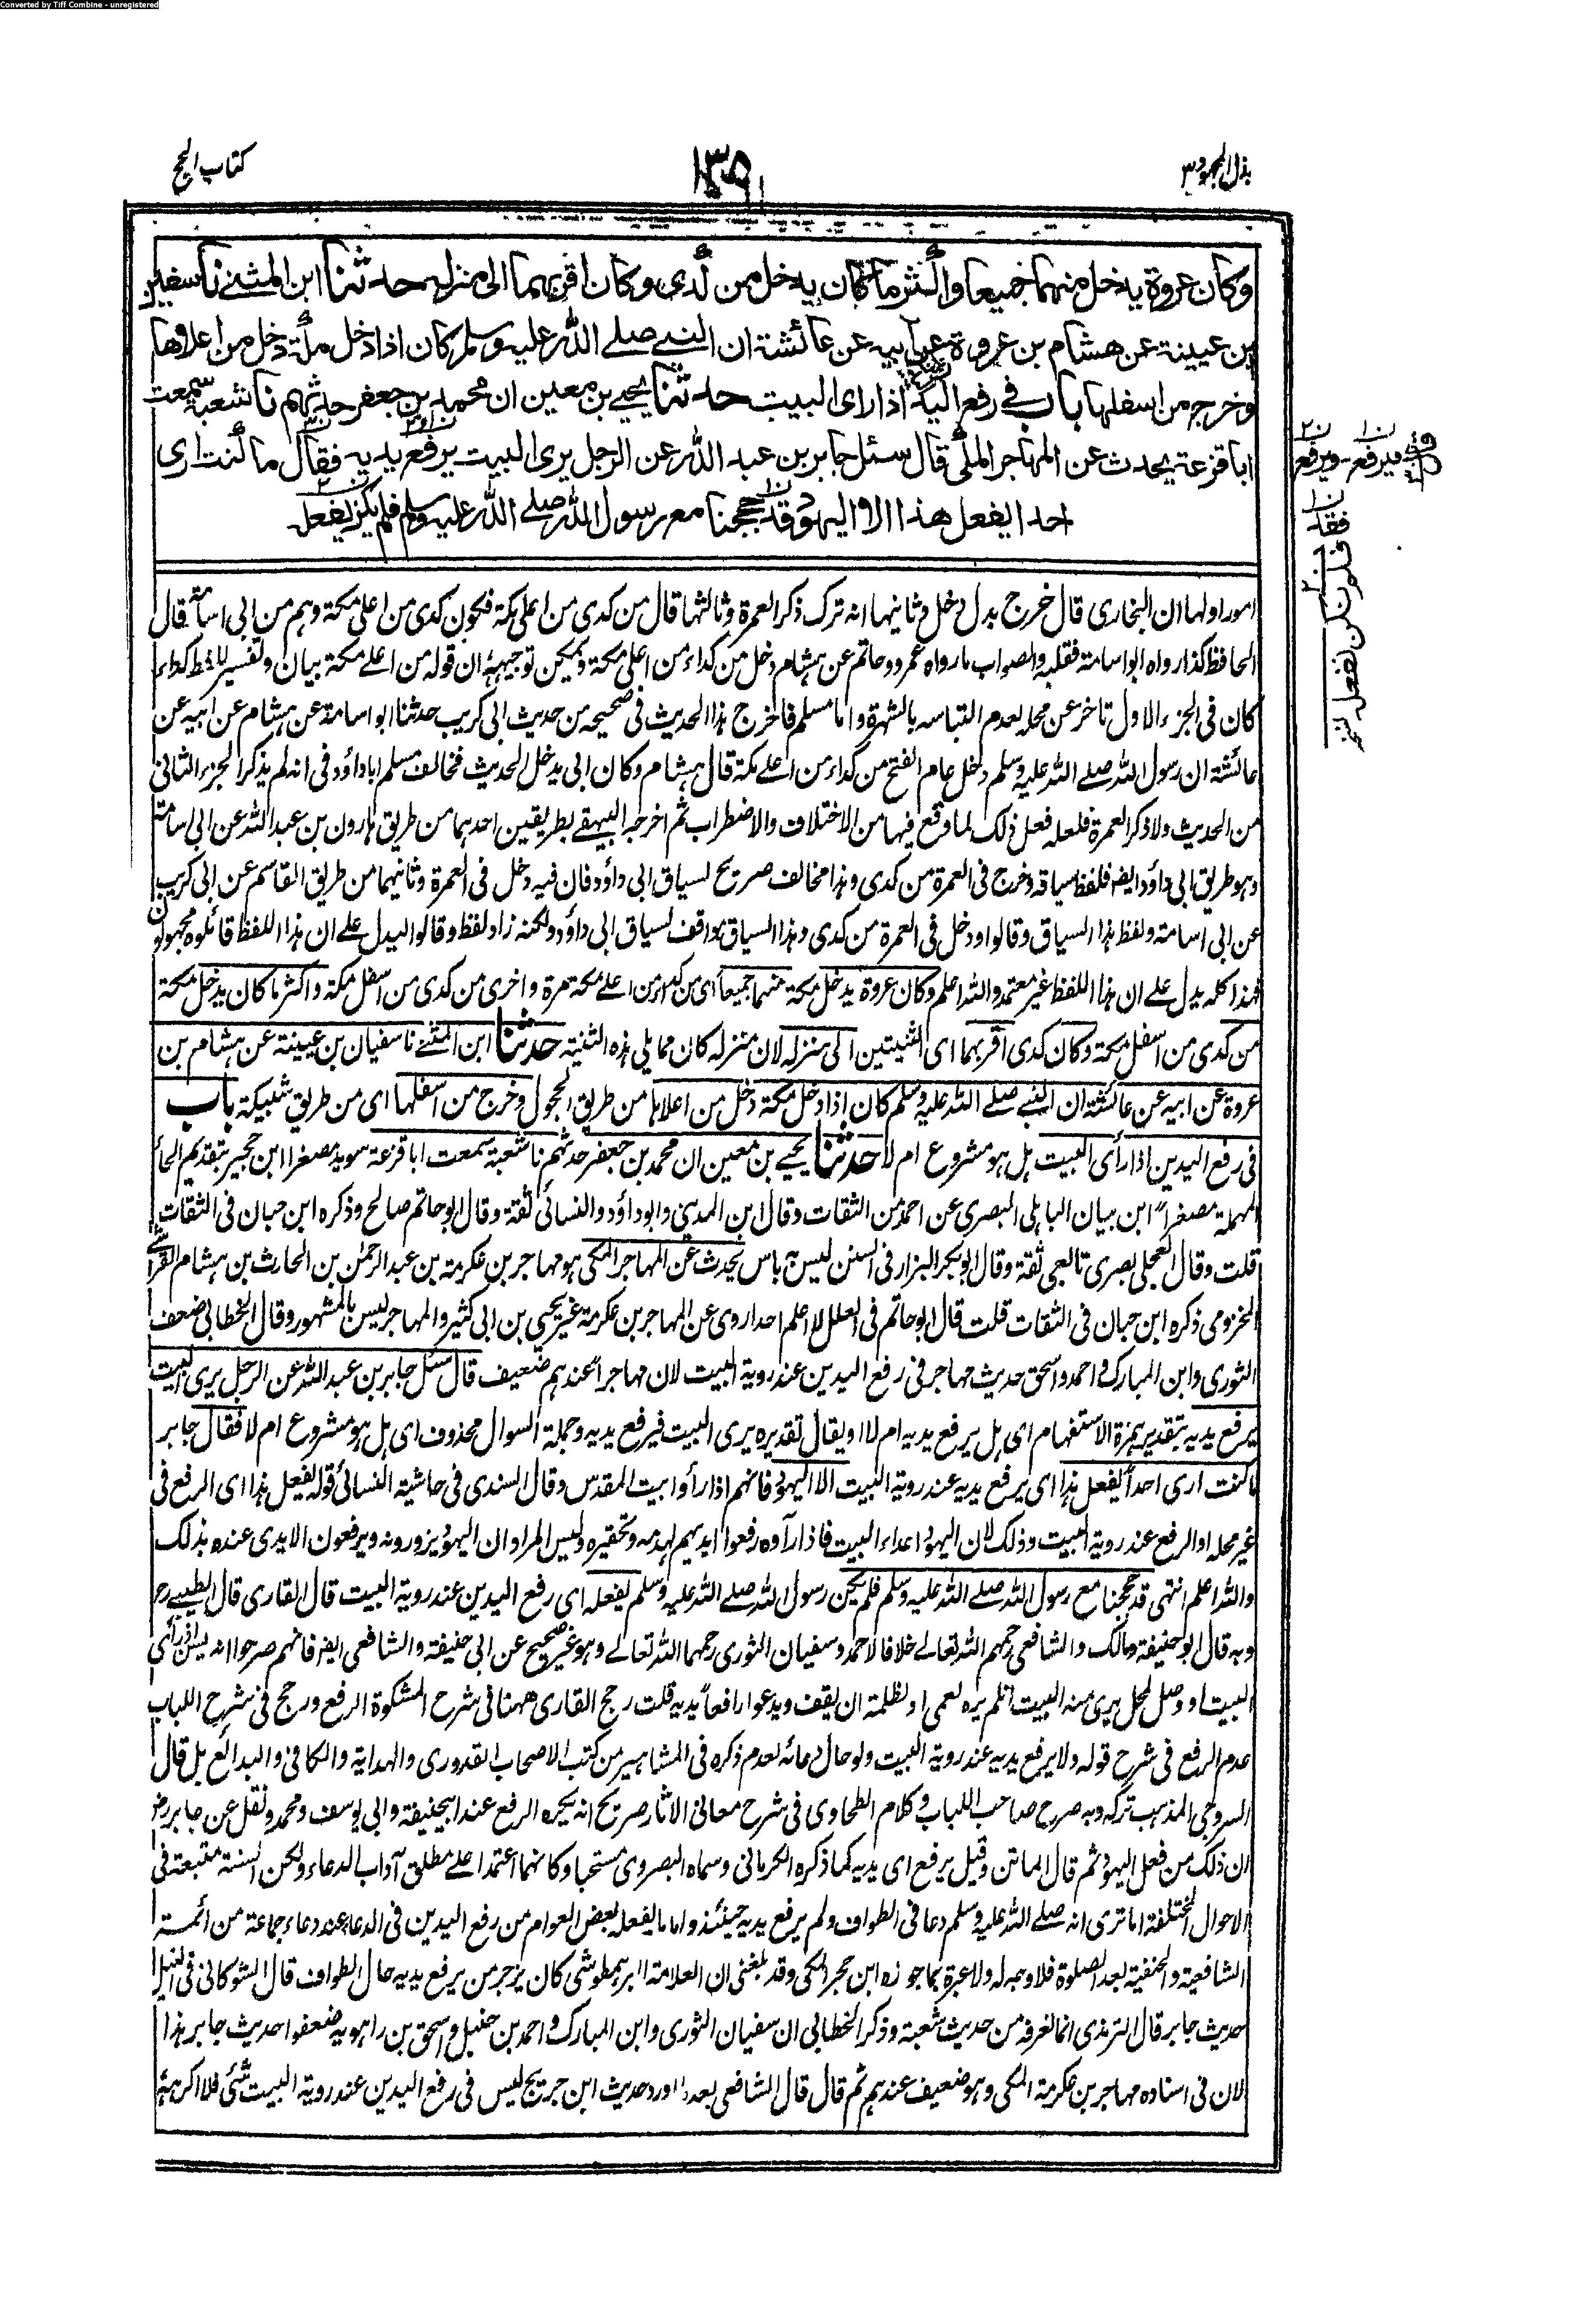 Converted by Tiff Combine - unregistered
بذل المجهود ٣
١٣٩
كتاب الحج
وكان عروة يدخل منهما جميعا واكثر ما كان يدخل من كدى وكان اقربهما الى منزله حدثنا ابن المثنى نا سفين
بن عيينة عن هشام بن عروة عن ابيه عن عائشة ان النبي صلے الله عليه وسلم كان اذا دخل مكة دخل من اعلاها
وخرج من اسفلها باب في رفع اليد اذا راى البيت حدثنا يحيى بن معين ان محمد بن جعفر حدثهم نا شعبة سمعت
ابا قزعة يحدث عن المهاجر المكي قال سئل جابر بن عبد الله عن الرجل يرى البيت يرفع يديه فقال ما كنت ارى
احدا يفعل هذا الا اليهود قد حججنا مع رسول الله صلے الله عليه وسلم فلم يكن يفعله
فيرفع - ويرفع
فقد
فلم يكن نفعله
امور اولها ان البخاري قال خرج بدل دخل وثانيها انه ترك ذكر العمرة وثالثها قال من كدى من اعلى مكة فتكون كدى من اعلى مكة وهم من ابى اسامة قال
الحافظ كذا رواه ابو اسامة فقلبه والصواب ما رواه عمرو وحاتم عن هشام دخل من كداء من اعلى مكة ويمكن توجيهه ان قوله من اعلے مكة بيان وتفسير للفظ كداء
كان في الجزء الاول تاخر عن محله لعدم التباسه بالشهرة واما مسلم فاخرج هذا الحديث في صحيحه من حديث ابى كريب حدثنا ابو اسامة عن هشام عن ابيه عن
عائشة ان رسول الله صلے الله عليه وسلم دخل عام الفتح من كداء من اعلے مكة قال هشام وكان ابى يدخل الحديث فخالف مسلم ابا داؤد في انه لم يذكر الجزء الثانى
من الحديث ولا ذكر العمرة فلعله فعل ذلك لما وقع فيها من الاختلاف والاضطراب ثم اخرجه البيهقے بطريقين احدهما من طريق هارون بن عبد الله عن ابى اسامة
وهو طريق ابى داؤد ايضا فلفظ سياقه وخرج فى العمرة من كدى وهذا مخالف صريح لسياق ابى داؤد فان فيه دخل فى العمرة وثانيهما من طريق القاسم عن ابى كريب
عن ابى اسامة ولفظ هذا السياق وقالوا ودخل فى العمرة من كدى وهذا السياق موافق لسياق ابى داؤد ولكنه زاد لفظ وقالوا ليدل علے ان هذا اللفظ قائلوه مجهولون
فهذا كله يدل علے ان هذا اللفظ غير معتمد والله اعلم وكان عروة يدخل مكة منهما جميعا اى من كداء من اعلے مكة مرة واخرى من كدى من اسفل مكة واكثر ما كان يدخل مكة
من كدى من اسفل مكة وكان كدى اقربهما اى الثنيتين الى منزله لان منزله كان مما يلى هذه الثنية حدثنا ابن المثنے نا سفيان بن عيينة عن هشام بن
عروة عن ابيه عن عائشة ان النبے صلے الله عليه وسلم كان اذا دخل مكة دخل من اعلاها من طريق الحجول وخرج من اسفلها اى من طريق شبيكة باب
فى رفع اليدين اذا رأى البيت هل هو مشروع ام لا حدثنا يحيے بن معين ان محمد بن جعفر حدثهم نا شعبة سمعت ابا قزعة سويد مصغرا ابن حجير بتقديم الحاء
المهملة مصغرا ابن بيان الباهلى البصرى عن احمد من الثقات وقال ابن المدينى وابو داؤد والنسائى ثقة وقال ابو حاتم صالح وذكره ابن حبان فى الثقات
قلت وقال العجلى بصرى تابعى ثقة وقال ابو بكر البزار فى السنن ليس به باس يحدث عن المهاجر المكى هو مهاجر بن عكرمة بن عبد الرحمٰن بن الحارث بن هشام القرشے
المخزومى ذكره ابن حبان فى الثقات قلت قال ابو حاتم فى العلل لا اعلم احدا روى عن المهاجر بن عكرمة غير يحيى بن ابى كثير والمهاجر ليس بالمشهور وقال الخطابى ضعف
الثورى وابن المبارك واحمد واسحق حديث مهاجر فى رفع اليدين عند روية البيت لان مهاجرا عندهم ضعيف قال سئل جابر بن عبد الله عن الرجل يرى البيت
يرفع يديه بتقدير همزة الاستفهام اى هل يرفع يديه ام لا او يقال تقديره يرى البيت فيرفع يديه وجملة السوال محذوف اى هل هو مشروع ام لا فقال جابر
ما كنت ارى احدا يفعل هذا اى يرفع يديه عند روية البيت الا اليهود فانهم اذا رأوا بيت المقدس وقال السندى فى حاشية النسائى قوله يفعل هذا اى الرفع فى
غير محله او الرفع عند روية البيت وذلك لان اليهود اعداء البيت فاذا رآوه رفعوا ايديهم لهدمه وتحقيره وليس المراد ان اليهود يزورونه ويرفعون الايدى عنده بذلك
والله اعلم انتهى قد حججنا مع رسول الله صلے الله عليه وسلم فلم يكن رسول الله صلے الله عليه وسلم يفعله اى رفع اليدين عند روية البيت قال القارى قال الطيبے رح
وبه قال ابو حنيفة ومالك والشافعى رحمهم الله تعالے خلافا لاحمد وسفيان الثورى رحمهما الله تعالے وهو غير صحيح عن ابى حنيفة والشافعى ايضا فانهم صرحوا انه يسن اذا رأى
البيت او وصل لمحل يرى منه البيت ان لم يره لعمى او لظلمة ان يقف ويدعوا رافعا يديه قلت رجح القارى ههنا فى شرح المشكوة الرفع ورجح فى شرح اللباب
عدم الرفع فى شرح قوله ولا يرفع يديه عند روية البيت ولو حال دعائه لعدم ذكره فى المشاهير من كتب الاصحاب القدورى والهداية والكافى والبدائع بل قال
السروجى المذهب تركه وبه صرح صاحب اللباب وكلام الطحاوى فى شرح معانى الاثار صريح انه يكره الرفع عند ابيحنيفة وابى يوسف ومحمد ونقل عن جابر رض
ان ذلك من فعل اليهود ثم قال الماتن وقيل يرفع اى يديه كما ذكره الكرمانى وسماه البصروى مستحبا وكانهما اعتمدا علے مطلق آداب الدعاء ولكن السنة متبعة فى
الاحوال المختلفة اما ترى انه صلے الله عليه وسلم دعا فى الطواف ولم يرفع يديه حينئذ واما ما يفعله بعض العوام من رفع اليدين فى الدعاء عند دعاء جماعة من ائمة
الشافعية والحنفية بعد الصلوة فلا وجه له ولا عبرة بما جوزه ابن حجر المكى وقد بلغنى ان العلامة ابرهيم طوشى كان يزجر من يرفع يديه حال الطواف قال الشوكانى فى النيل
حديث جابر قال الترمذى انما نعرفه من حديث شعبة وذكر الخطابى ان سفيان الثورى وابن المبارك واحمد بن حنبل واسحق بن راهويه ضعفوا حديث جابر هذا
لان فى اسناده مهاجر بن عكرمة المكى وهو ضعيف عندهم ثم قال قال الشافعى بعد ان اورد حديث ابن جريج ليس فى رفع اليدين عند روية البيت شئى فلا اكرهه